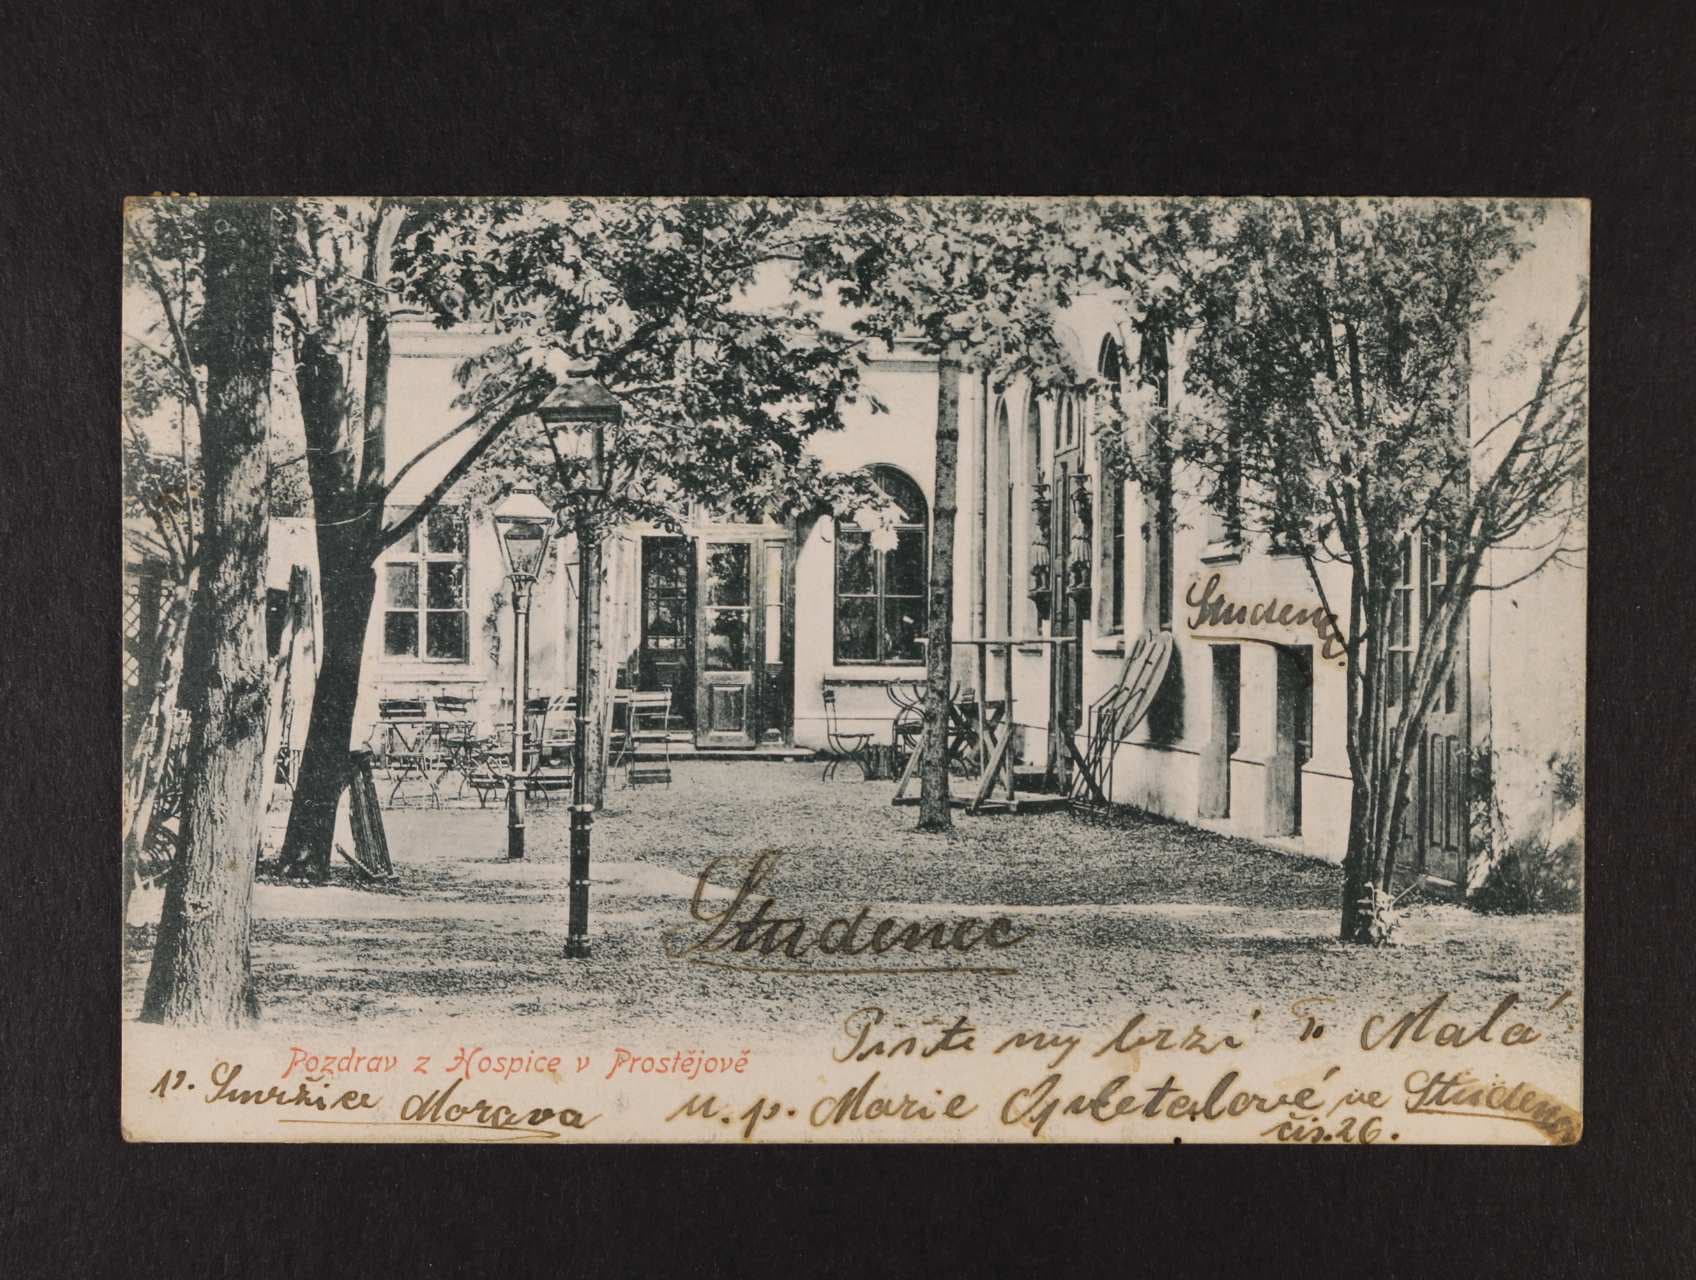 Studenec
Studenec
Pište my brzi To Malá
Pozdrav z Hospice v Prostějově
p. Smržice Morava u. p. Marie Opletalové ve Studenci
čís. 26.